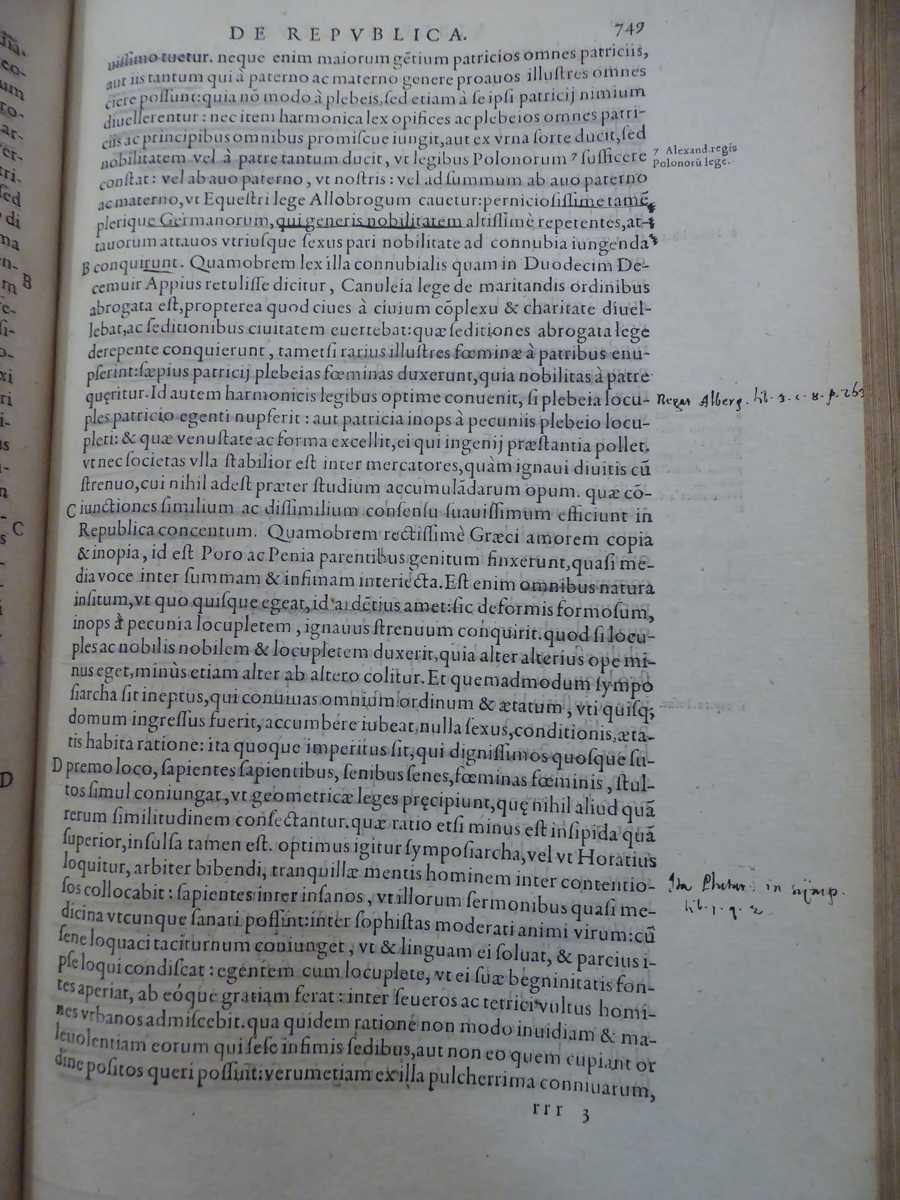 DE REPVBLICA. 749
uissimo tuetur. neque enim maiorum gẽtium patricios omnes patriciis,
aut iis tantum qui à paterno ac materno genere proauos illustres omnes
ciere possunt: quia nõ modo à plebeis, sed etiam à se ipsi patricij nimium
diuellerentur: nec item harmonica lex opifices ac plebeios omnes patri-
ciis ac principibus omnibus promiscue iungit, aut ex vrna sorte ducit, sed
nobilitatem vel à patre tantum ducit, vt legibus Polonorum 7 sufficere
7 Alexand. regis
Polonorũ lege.
constat: vel ab auo paterno, vt nostris: vel ad summum ab auo paterno
ac materno, vt Equestri lege Allobrogum cauetur: perniciosissime tamẽ
plerique Germanorum, qui generis nobilitatem altissimè repetentes, at-
tauorum attauos vtriusque sexus pari nobilitate ad connubia iungenda
B conquirunt. Quamobrem lex illa connubialis quam in Duodecim De-
cemuir Appius retulisse dicitur, Canuleia lege de maritandis ordinibus
abrogata est, propterea quod ciues à ciuium cõplexu & charitate diuel-
lebat, ac seditionibus ciuitatem euertebat: quæ seditiones abrogata lege
derepente conquierunt, tametsi rarius illustres fœminæ à patribus enu-
pserint: sæpius patricij plebeias fœminas duxerunt, quia nobilitas à patre
quęritur. Id autem harmonicis legibus optime conuenit, si plebeia locu-
ples patricio egenti nupserit: aut patricia inops à pecuniis plebeio locu-
pleti: & quæ venustate ac forma excellit, ei qui ingenij præstantia pollet.
vt nec societas vlla stabilior est inter mercatores, quàm ignaui diuitis cũ
strenuo, cui nihil adest præter studium accumulãdarum opum. quæ cõ-
C iunctiones similium ac dissimilium consensu suauissimum efficiunt in
Republica concentum. Quamobrem rectissimè Græci amorem copia
& inopia, id est Poro ac Penia parentibus genitum finxerunt, quasi me-
dia voce inter summam & infimam interiecta. Est enim omnibus natura
insitum, vt quo quisque egeat, id ardẽtius amet: sic deformis formosum,
inops à pecunia locupletem, ignauus strenuum conquirit. quod si locu-
ples ac nobilis nobilem & locupletem duxerit, quia alter alterius ope mi-
nus eget, minùs etiam alter ab altero colitur. Et quemadmodum sympo
siarcha sit ineptus, qui conuiuas omnium ordinum & ætatum, vti quisq;
domum ingressus fuerit, accumbere iubeat, nulla sexus, conditionis, æta-
tis habita ratione: ita quoque imperitus sit, qui dignissimos quosque su-
D premo loco, sapientes sapientibus, senibus senes, fœminas fœminis, stul-
tos simul coniungat, vt geometricæ leges pręcipiunt, quę nihil aliud quã
rerum similitudinem consectantur. quæ ratio etsi minus est insipida quã
superior, insulsa tamen est. optimus igitur symposiarcha, vel vt Horatius
loquitur, arbiter bibendi, tranquillæ mentis hominem inter contentio-
sos collocabit: sapientes inter insanos, vt illorum sermonibus quasi me-
dicina vtcunque sanari possint: inter sophistas moderati animi virum: cũ
sene loquaci taciturnum coniunget, vt & linguam ei soluat, & parcius i-
pse loqui condiscat: egentem cum locuplete, vt ei suæ begninitatis fon-
tes aperiat, ab eóque gratiam ferat: inter seueros ac tetrici vultus homi-
nes vrbanos admiscebit. qua quidem ratione non modo inuidiam & ma-
leuolentiam eorum qui sese infimis sedibus, aut non eo quem cupiant or
dine positos queri possint: verumetiam ex illa pulcherrima conuiuarum,
rrr 3
Alberg. lib. 3. c. 8. p. 263
in symp.
lib. 1. q. 2